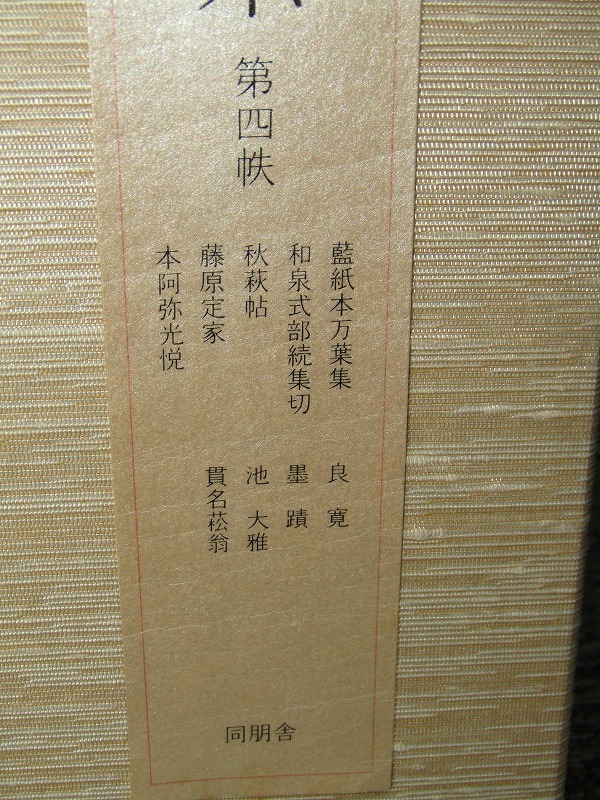 第四帙
藍紙本万葉集
和泉式部続集切
秋萩帖
藤原定家
本阿弥光悦
良寛
墨蹟
池大雅
貫名菘翁
同朋舎